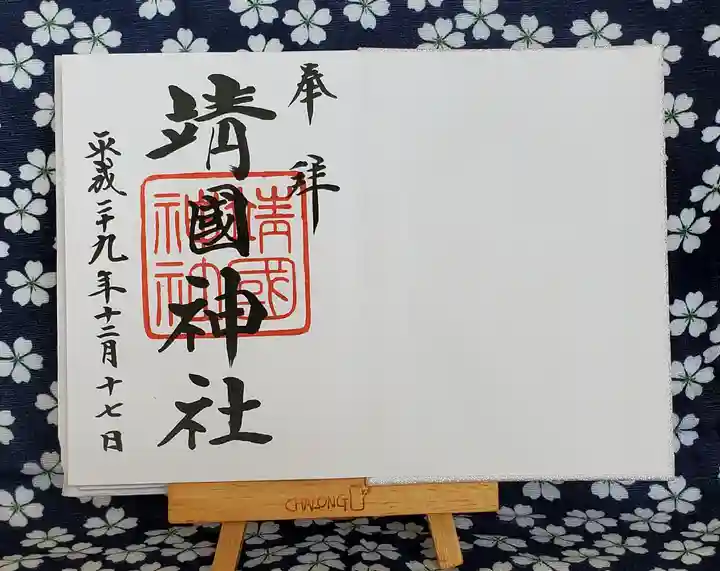 奉拝
靖國神社
靖國神社
平成二十九年十二月十七日
CHALONG